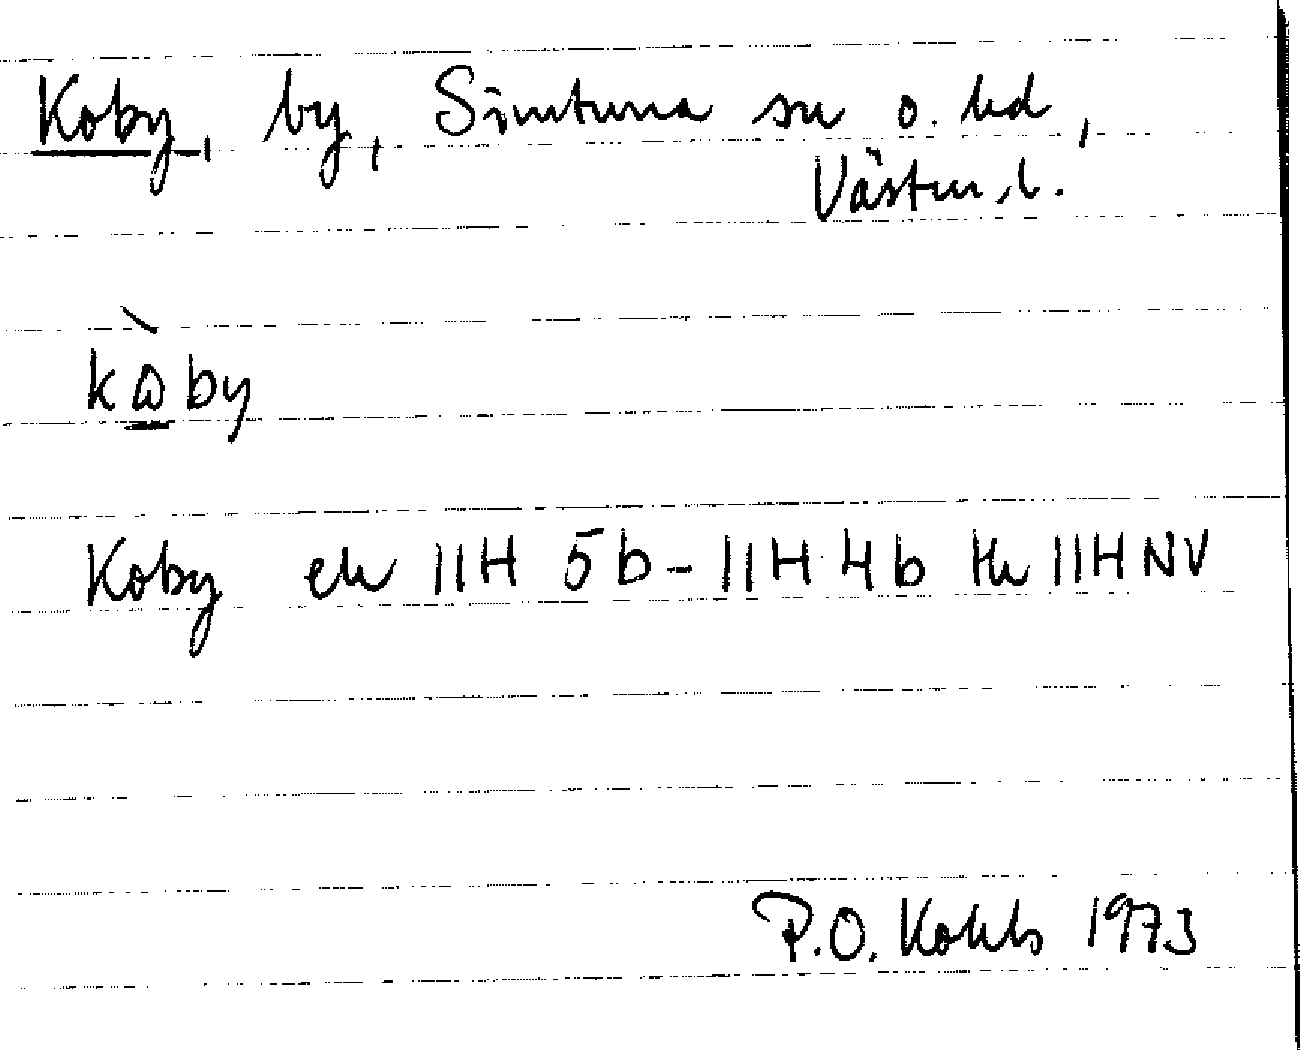 Koby, by, Simtuna sn o. hd,
Västm. l.
kὼby
Koby ek 11H 5b-11H 4b tk 11H NV
P.O. 1973